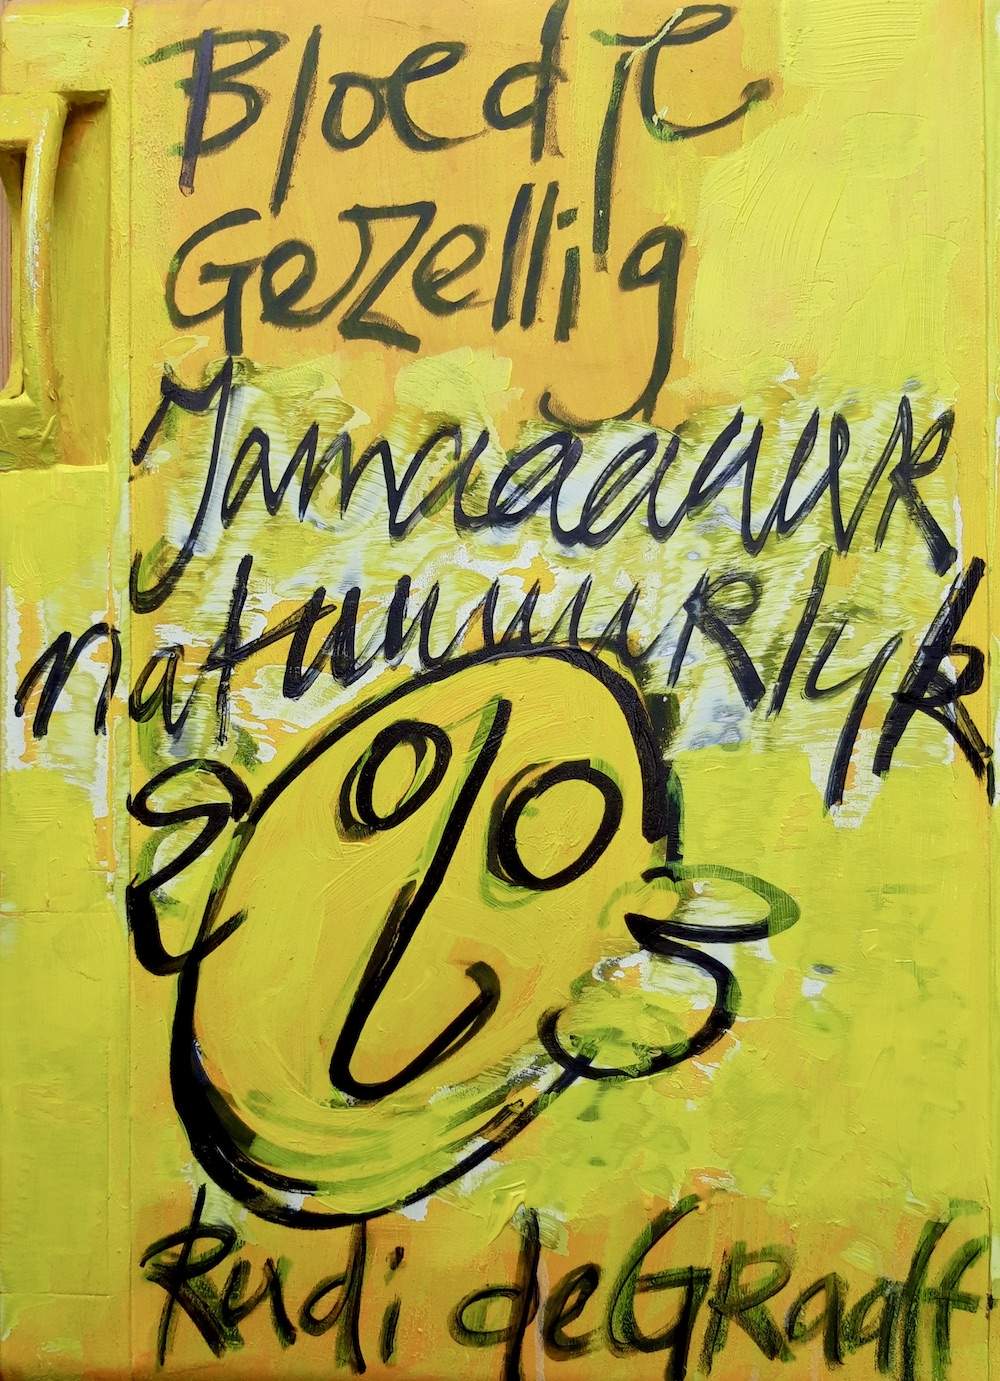 Bloedje
Gezellig
Jamaaaauuk
natuuuurlyk
Rudi de Graaff